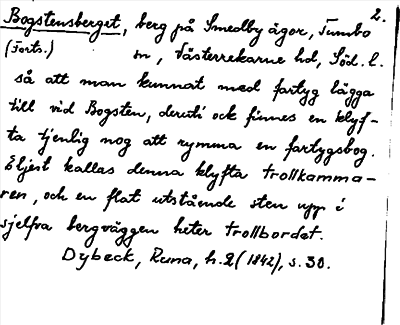 2.
Bogstensberget, berg på Smedby ägor, Tumbo
(Forts.) sn, Västerrekarne hd, Söd. l.
så att man kunnat med fartyg lägga
till vid Bogsten, deruti ock finnes en klyf-
ta tjenlig nog att rymma en fartygsbog.
Eljest kallas denna klyfta trollkamma-
ren, och en flat utstående sten upp i
sjelfva bergväggen heter trollbordet.
Dybeck, Runa, h. 2 (1842), s. 30.